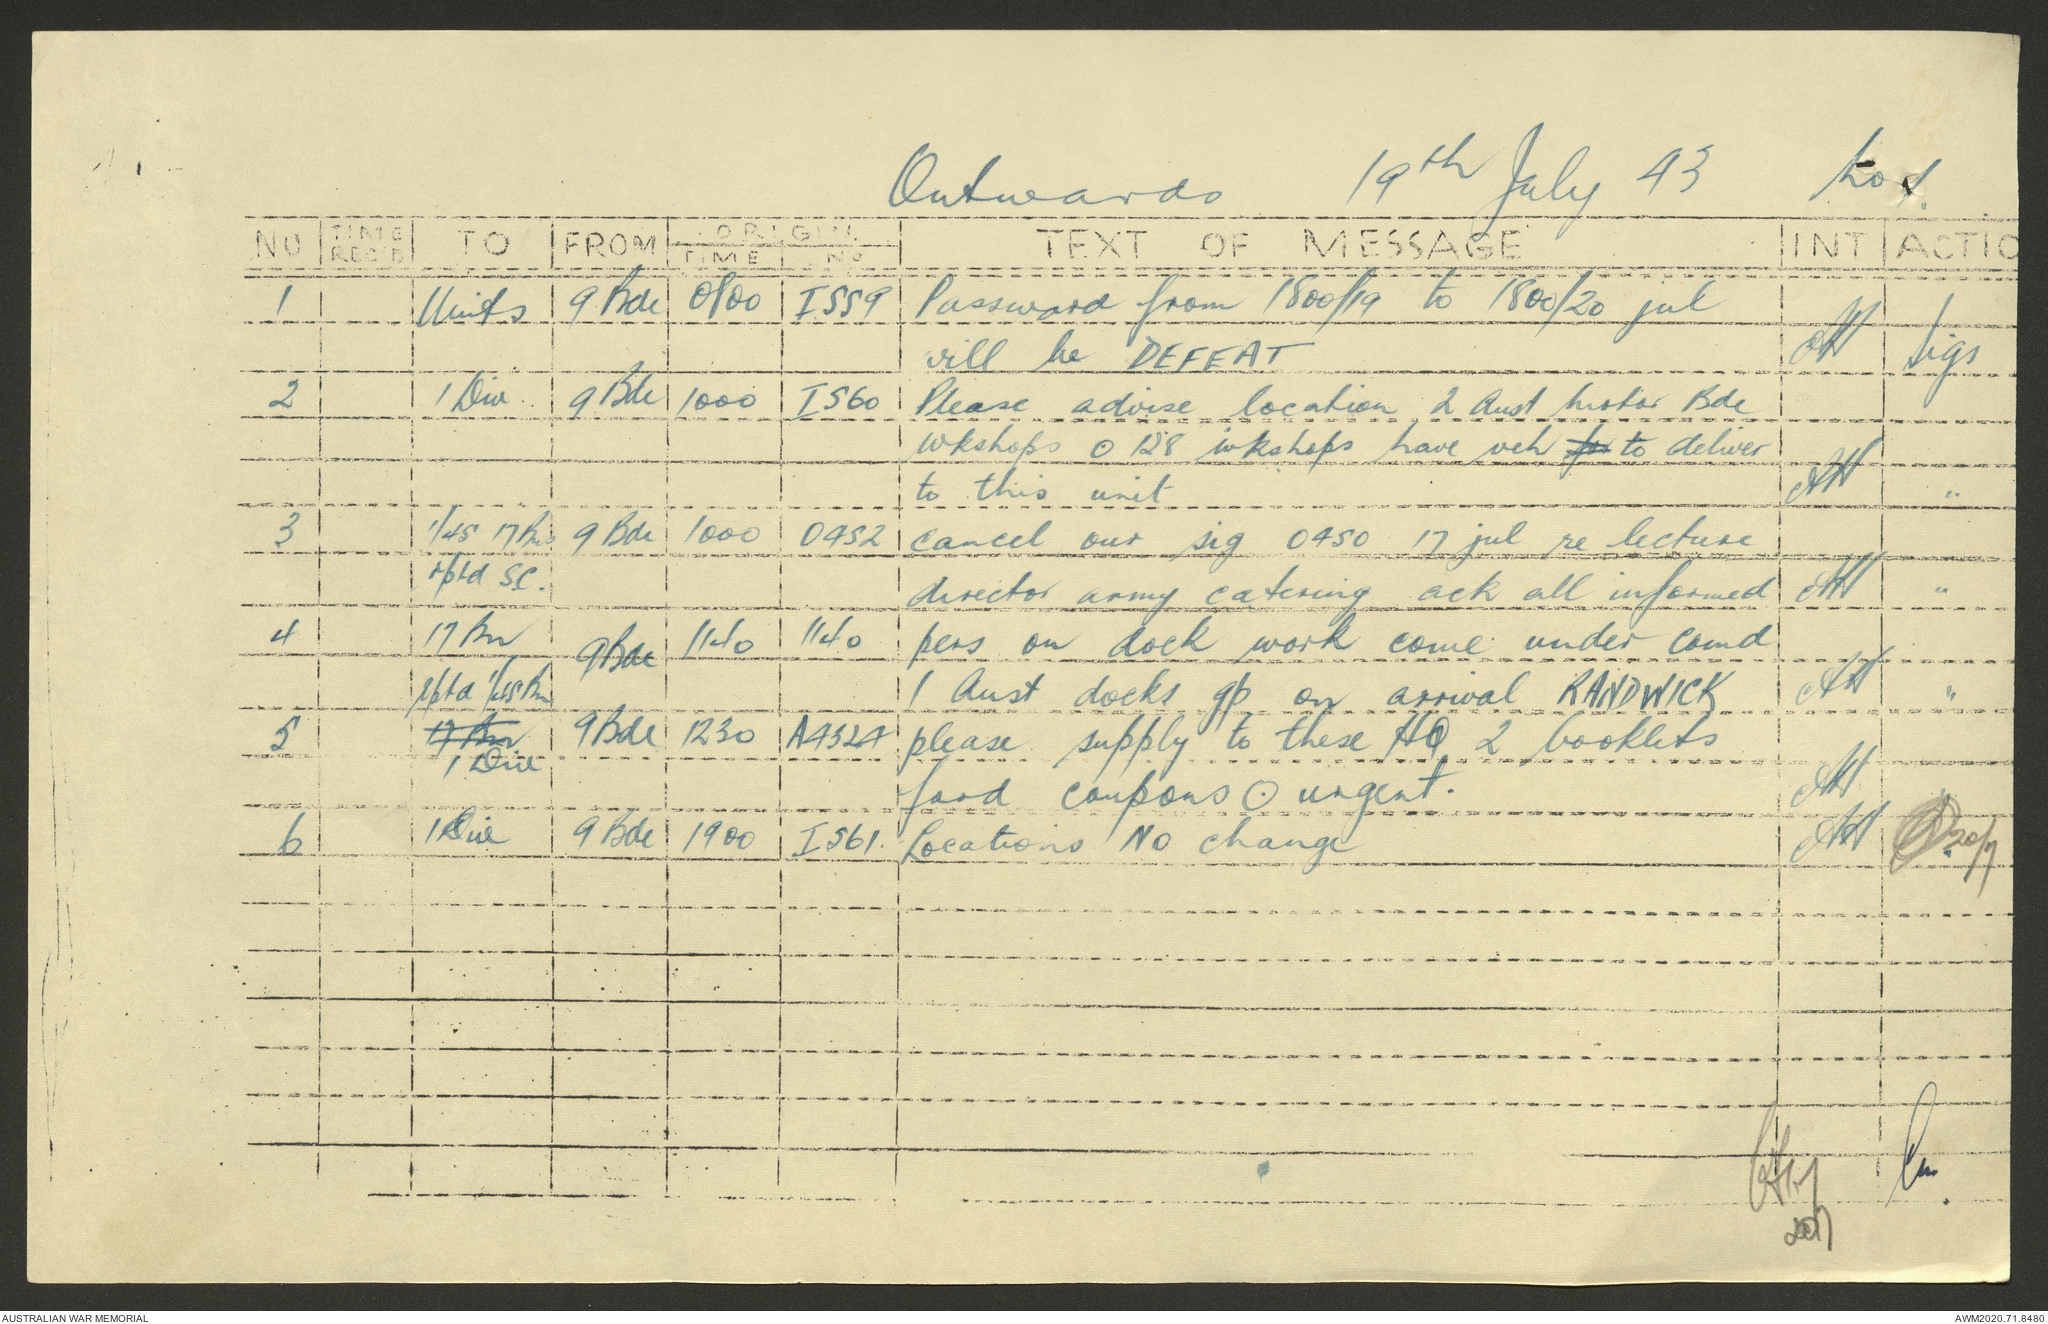 Outwards 19th July 43 No 1.
NO TIME REC'D TO FROM ORIGIN TIME NO TEXT OF MESSAGE INT ACTIO
1 Units 9 Bde 0800 IS59 Password from 1800/19 to 1800/20 jul
will be DEFEAT AH Sigs
2 1 Div. 9 Bde 1000 IS60 Please advise location 2 Aust Motor Bde
wkshops ⊙ 128 wkshops have veh for to deliver
to this unit AH "
3 1/45 17 Bns 9 Bde 1000 O452 cancel our sig O450 17 jul re lecture
rptd SC. director army catering ack all informed AH "
4 17 Bn 9 Bde 1140 1140 pers on dock work come under comd
rptd 1/45 Bn 1 Aust docks gp on arrival RANDWICK AH "
5 17 Bn 9 Bde 1230 A4324 please supply to these HQ 2 booklets
1 Div
food coupons ⊙ urgent. AH
6 1 Div 9 Bde 1900 IS61. Locations No change AH 20/7
20/7
AUSTRALIAN WAR MEMORIAL AWM2020.71.8480